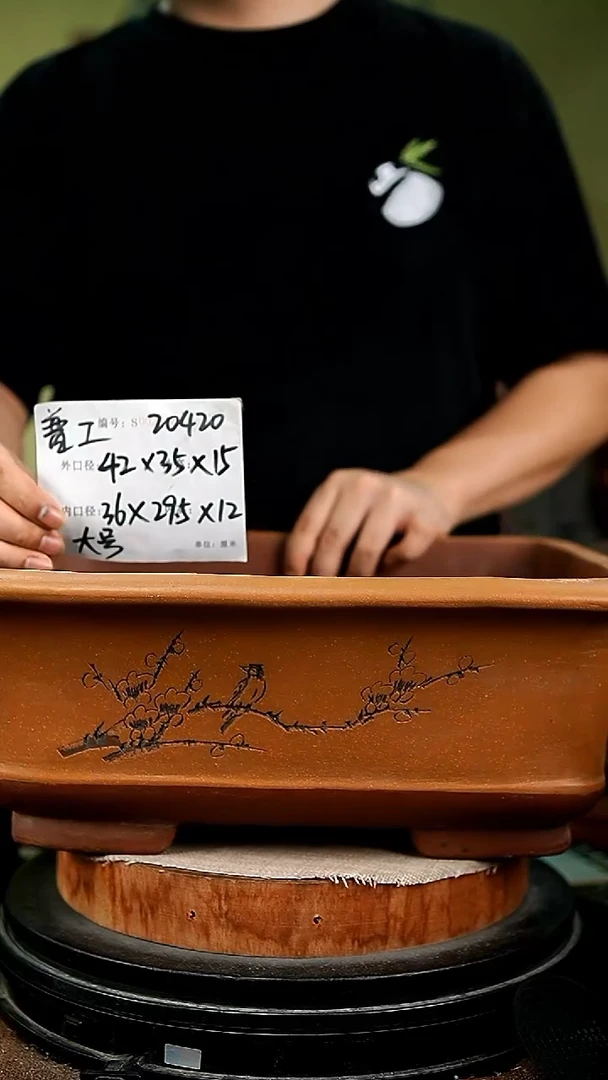 普工 编号: S 20420
外口径: 42×35×15
内口径: 36×295×12
大号 单位: 厘米